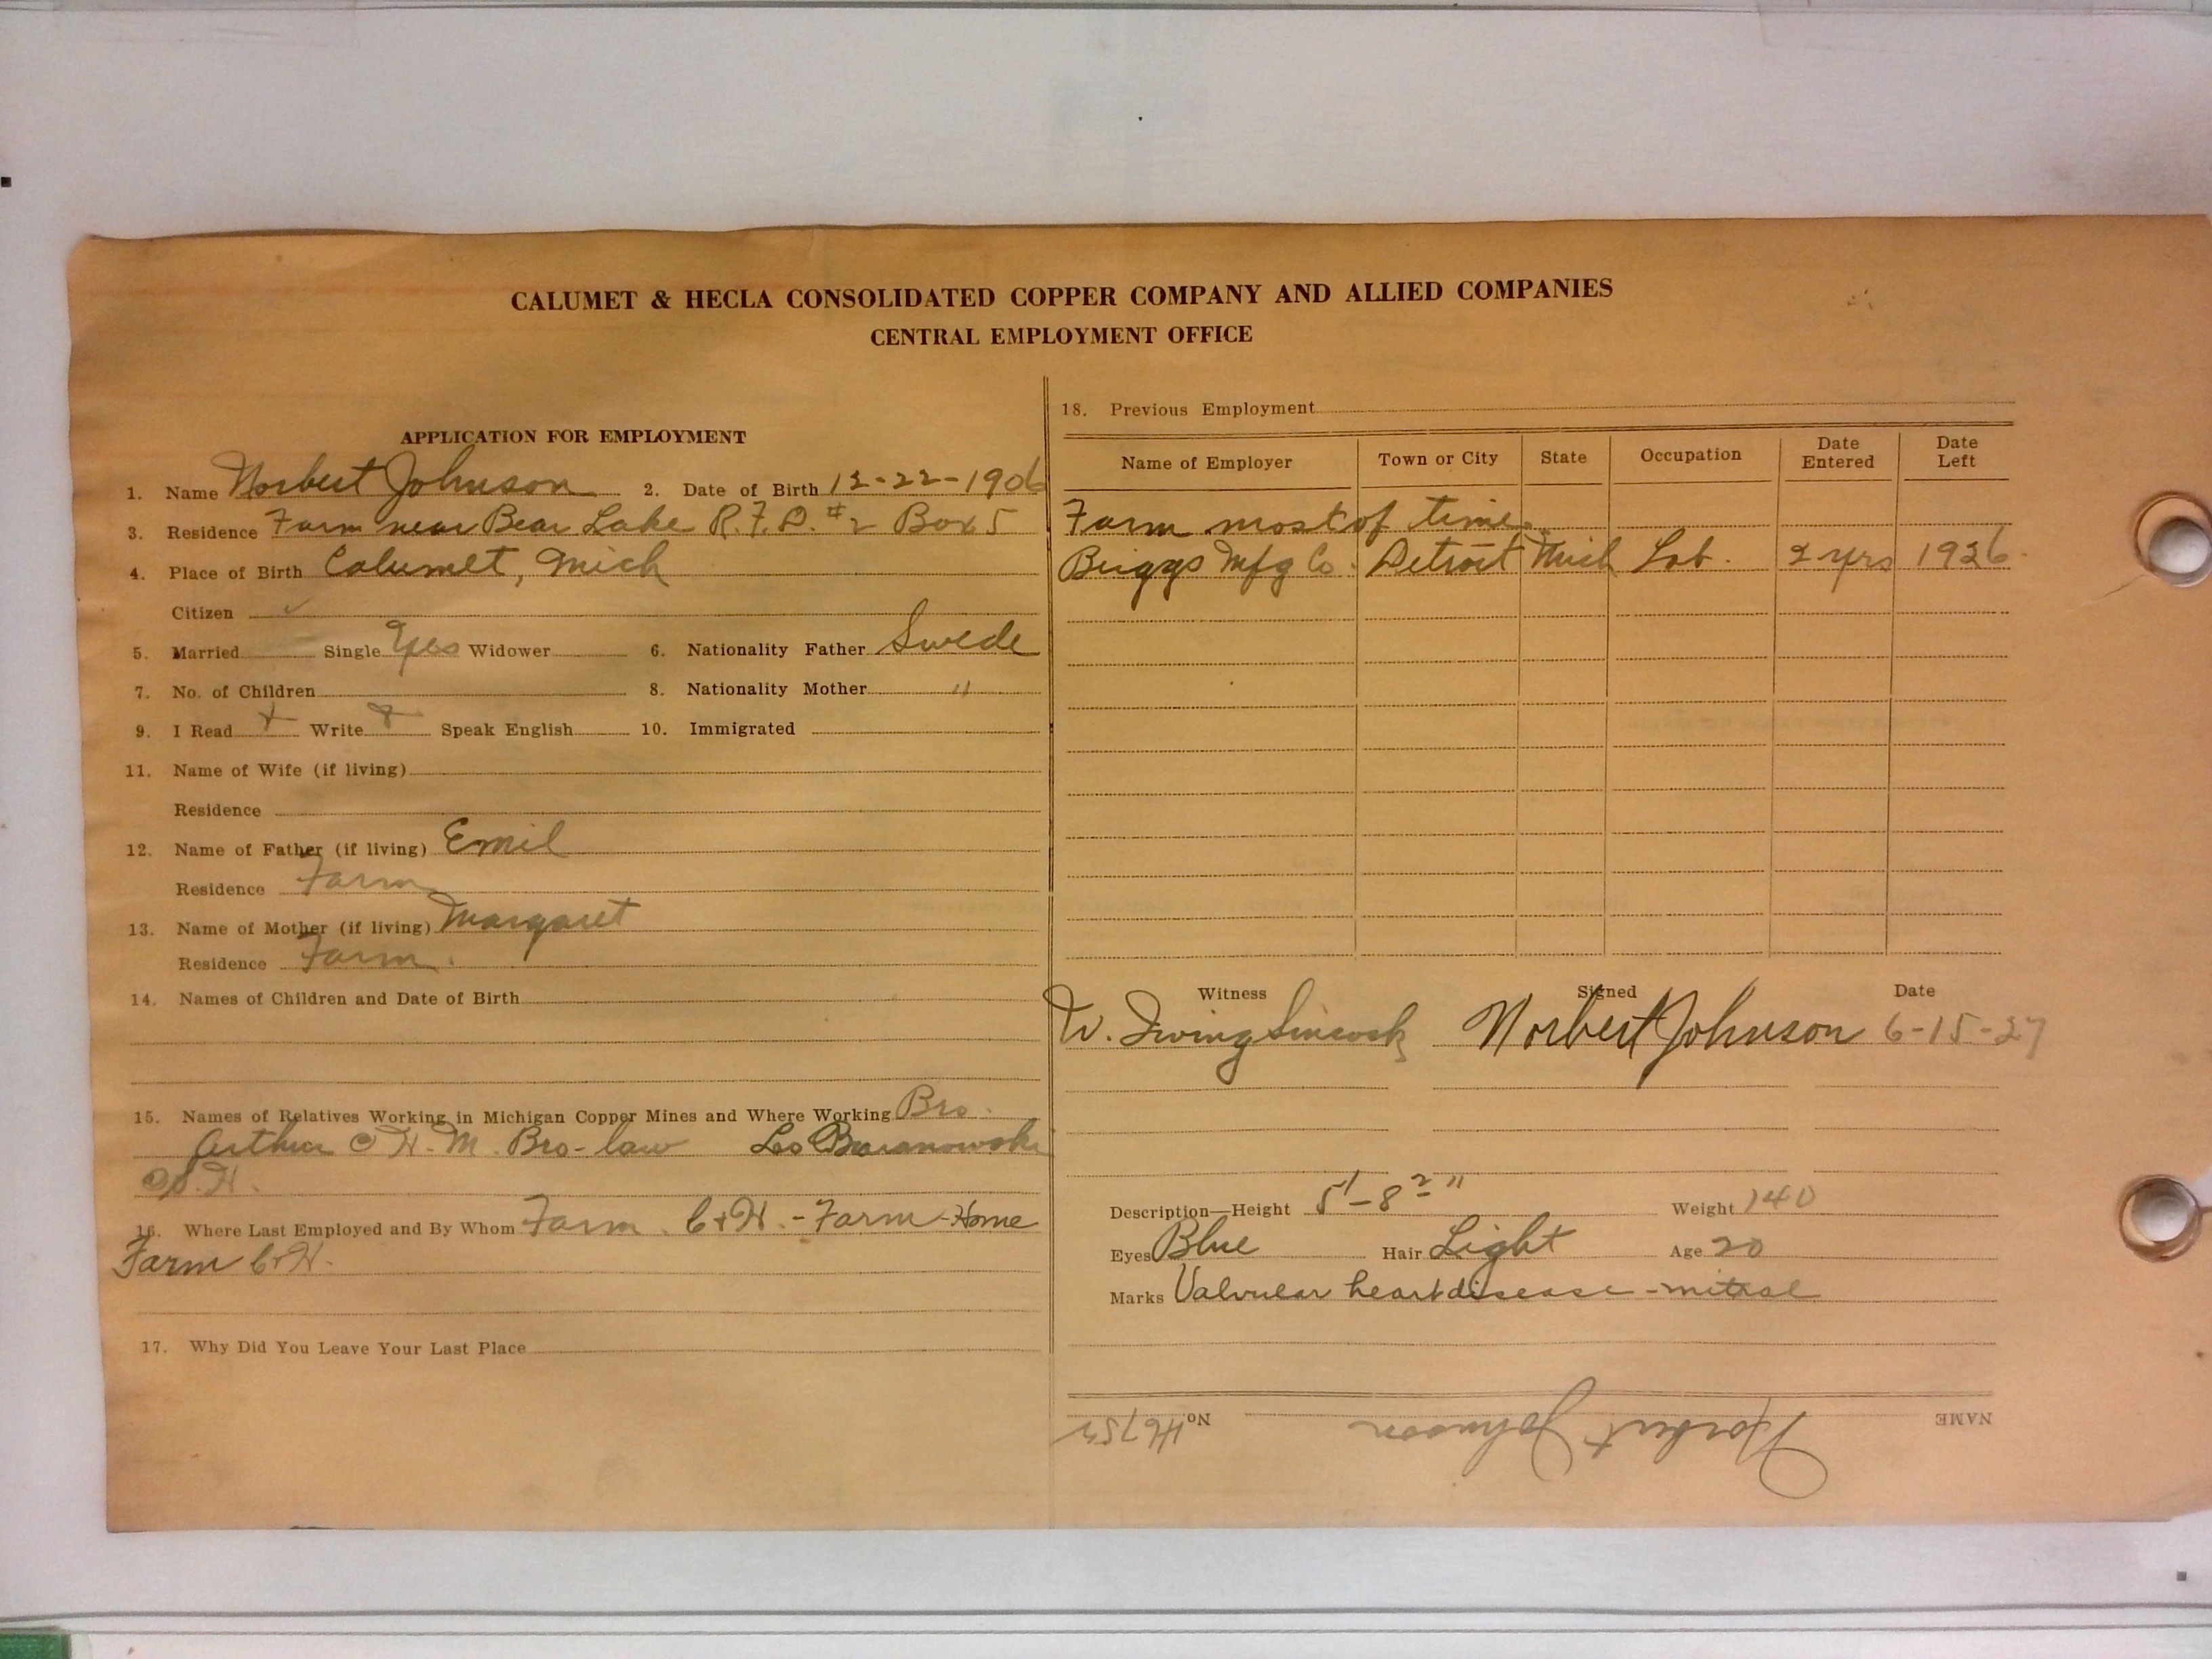 CALUMET & HECLA CONSOLIDATED COPPER COMPANY AND ALLIED COMPANIES
CENTRAL EMPLOYMENT OFFICE
APPLICATION FOR EMPLOYMENT
1. Name Norbert Johnson 2. Date of Birth 12-22-1906
3. Residence Farm near Bear Lake R.F.D. #2 Box 5
4. Place of Birth Calumet, Mich
Citizen ✓
5. Married - Single Yes Widower 6. Nationality Father Swede
7. No. of Children 8. Nationality Mother "
9. I Read Write Speak English 10. Immigrated
11. Name of Wife (if living)
Residence
12. Name of Father (if living) Emil
Residence Farm
13. Name of Mother (if living) Margaret
Residence Farm.
14. Names of Children and Date of Birth
15. Names of Relatives Working in Michigan Copper Mines and Where Working Bro.
Arthur @ H. M. Bro-law Leo Baranowski
16. Where Last Employed and By Whom Farm. C+H. - Farm - Home
Farm C+H.
17. Why Did You Leave Your Last Place
18. Previous Employment
Name of Employer Town or City State Occupation Date Entered Date Left
Farm most of time.
Briggs Mfg Co. Detroit Mich Lab. 2 yrs 1926.
Witness Signed Date
W. Irving Sincock Norbert Johnson 6-15-27
Description—Height 5'-8 2" Weight 140
Eyes Blue Hair Light Age 20
Marks Valvular heart disease - mitral
NAME Norbert Johnson No.